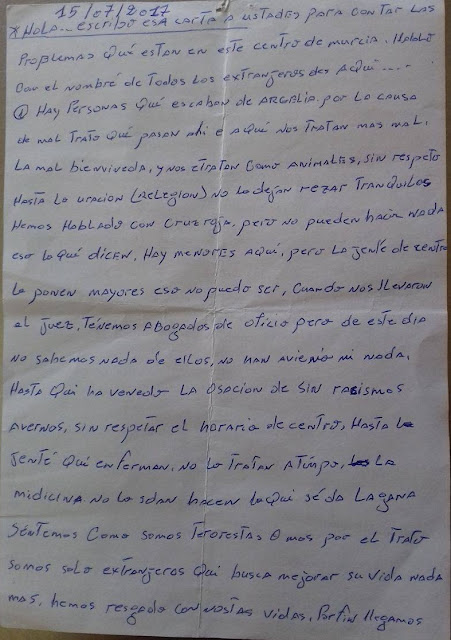 15/07/2017
*Hola... escribo esa carta a ustades para contar las
Problemas Qué estan en este centro de murcia. Hablo
Con el nombré de Todos los extranjeros des Aquí....
① Hay Personas Qué escaban de ARGELIA por lo causa
de mal Trato Qué pasan ahi e aquí nos tratan mas mal.
La mal bienviveda, y nos etratan Como animales, sin respeto
Hasta lo oracion (Relegion) no lo dejan rezar Tranquilos
Hemos Hablado con cruz roja, pero no pueden hacir nada
eso lo qui dicen. Hay menores Aquí, pero La jente de centro
Lo ponen mayores eso no puedo ser, Cuando nos llevaron
el juez. Ténemos Abogados de oficio pero de este dia
no sabemos nada de ellos, no han avienío ni nada.
Hasta Qui ha venedo la osacion de Sin racismos
avernos, sin respetar el horario de centro, Hasta la
jenté Qui enferman, no lo tratan a timpo, La
midicina no lo sdan hacen lo qui sé da La gana
Séntemos Como somos Terorestas, o mas por el Trato
somos solo extranjeros Qui busca mejorar su vida nada
mas, hemos resgado con nostas vidas, Por fin llegamos